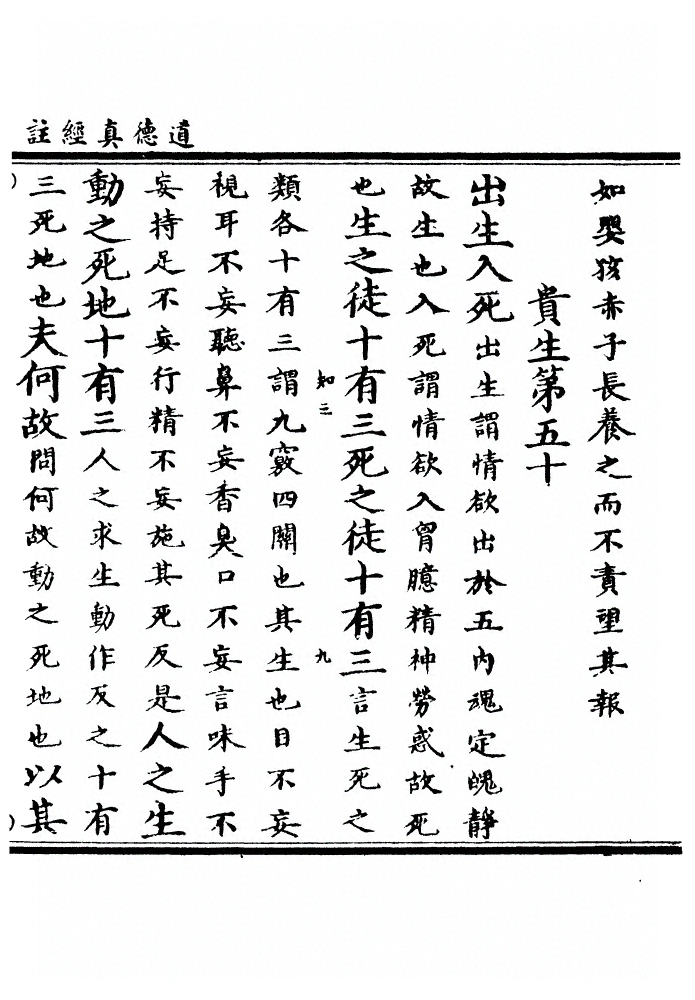 道德真經註
如嬰孩赤子長養之而不責望其報
貴生第五十
出生入死出生謂情欲出於五內魂定魄靜
故生也入死謂情欲入胷臆精神勞惑故死
也生之徒十有三死之徒十有三言生死之
知三
九
類各十有三謂九竅四關也其生也目不妄
視耳不妄聽鼻不妄香臭口不妄言味手不
妄持足不妄行精不妄施其死反是人之生
動之死地十有三人之求生動作反之十有
三死地也夫何故問何故動之死地也以其